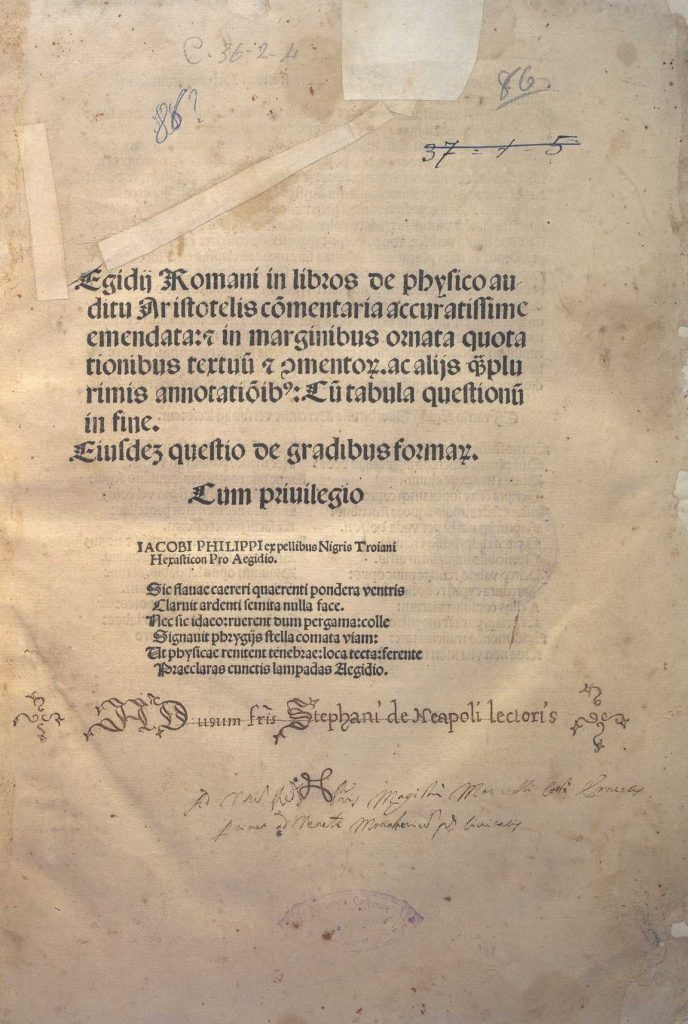 C. 36-2-4
86?
86
37=1-5
Egidij Romani in libros de physico au-
ditu Aristotelis cõmentaria accuratissime
emendata: ⁊ in marginibus ornata quota
tionibus textuũ ⁊ ꝯmentoꝝ. ac alijs ꝙ̃plu
rimis annotatiõibꝰ: Cũ tabula questionũ
in fine.
Eiusdeꝫ questio de gradibus formaꝝ.
Cum priuilegio
IACOBI PHILIPPI ex pellibus Nigris Troiani
Hexasticon Pro Aegidio.
Sic flauae caereri quaerenti pondera ventris
Claruit ardenti semita nulla face.
Nec sic idaeo: ruerent dum pergama: colle
Signauit phrygijs stella comata viam:
Ut physicae renitent tenebrae: loca tecta: ferente
Praeclaras cunctis lampadas Aegidio.
AD usum fr̃is Stephani de Neapoli lectoris
Ad Magistri
ad